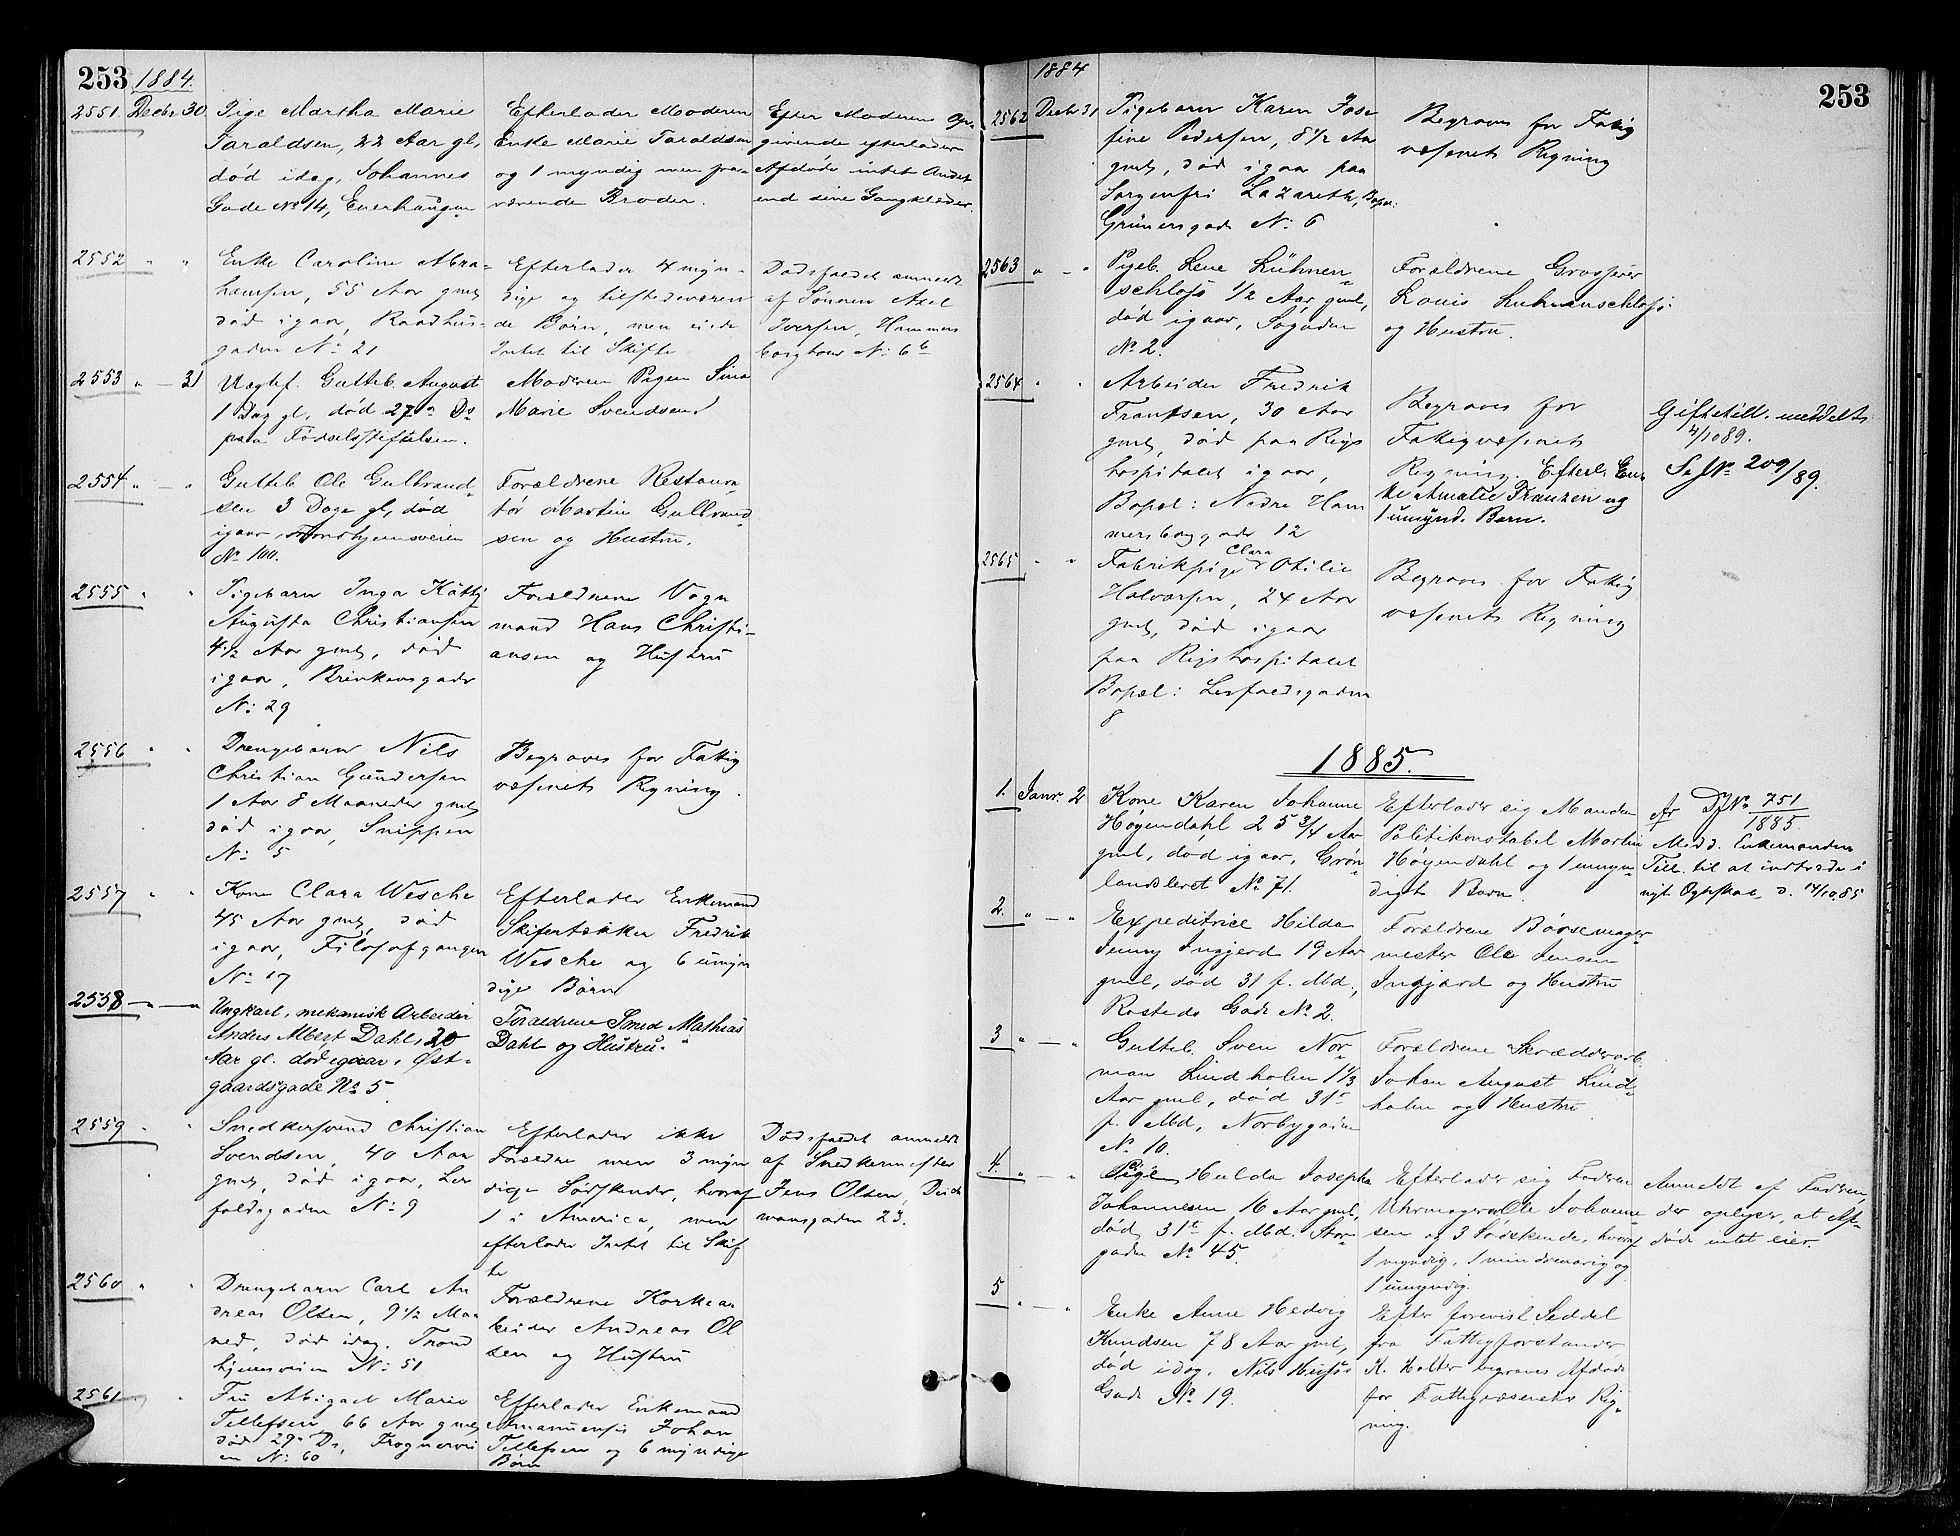 253 1884.
2551 Decbr 30 Pige Martha Marie
Taraldsen, 22 Aar gl,
død idag, Johannes
Gade No 14, Enerhaugen
Efterlader Moderen
Enke Marie Taraldsen
og 1 myndig men fra-
værende Broder.
Efter Moderen Op-
givende efterlader
Afdøde intet Andet
end sine Gangklæder.
2552 " " Enke Caroline Abra-
hamsen, 55 Aar gml,
død igaar, Raadhus-
gaden No 21
Efterlader 4 myn-
dige og tilstedeværen
de Børn, men eiede
Intet til Skifte
Dødsfaldet anmeldt
af Sønnen Axel
Iversen, Hammers
borgtour No 6b
2553 " — 31 Uægtef. Gutteb. August
1 Dag gl, død 27de Ds
paa Fødselsstiftelsen.
Moderen Pigen Sina
Marie Svendsen
2554 " — " Gutteb Ole Gulbrand-
sen 3 Dage gl, død
igaar, Trondhjemsveien
No 100.
Forældrene Restaura
tør Martin Gulbrand-
sen og Hustru.
2555 " " Pigebarn Inga Kathy
Augusta Christiansen
4 1/2 Aar gml, død
igaar, Brinkensgade
No 29
Forældrene Vogn
mand Hans Christi-
ansen og Hustru
2556 " " Drengebarn Nils
Christian Gundersen
1 Aar 8 Maaneder gml,
død igaar, Snippen
No 5
Begraves for Fattig
væsenets Regning.
2557 " " Kone Clara Wesche
45 Aar gml, død
igaar, Filosofgangen
No 17
Efterlader Enkemand
Skifertækker Fredrik
Wesche og 6 umyn
dige Børn
2558 — " — " Ungkarl, mekanisk Arbeider
Anders Albert Dahl, 20
Aar gl. død igaar, Øst-
gaardsgade No 5.
Forældrene Smed Mathias
Dahl og Hustru.
2559 " " Snedkersvend Christian
Svendsen, 40 Aar
gml, død igaar, Lak
kegaden No 9
Efterlader ikke
Forældre men 3 myn
dige Sødskende, hvoraf
1 i America, men
efterlader Intet til Skif
te
Dødsfaldet anmeldt
af Snedkermester
Jens Olsen, Deich
mansgaden 23.
2560 " " Drengebarn Carl An
dreas Olsen, 9 1/2 Maa
ned, død idag, Trond
hjemsveien No 51
Forældrene Korkear
beider Andreas Ol
sen og Hustru
2561 " Fru Abigael Marie
Tellefsen, 66 Aar gml,
død 29de Ds, Frognervei
en No 60
Efterlader Enkemand
Amanuensis Johan
Tellefsen og 6 myndige
Børn
1884 253
2562 Decbr 31 Pigebarn Karen Jose
fine Pedersen, 8 1/2 Aar
gml, død igaar paa
Sorgenfri Lazareth, Bopæl:
Grünersgade No 6
Begraves for Fattig
væsenets Regning
2563 " — " Pigeb. Lene Lühmen-
schloss 1/2 Aar gml,
død igaar, Søgaden
No 2.
Forældrene Grosserer
Louis Luhmenschloss
og Hustru.
2564 " " Arbeider Fredrik
Frantsen, 30 Aar
gml, død paa Rigs
hospitalet igaar,
Bopæl: Nedre Ham
mersborggade 12
Begraves for
Fattigvæsenets
Regning. Efterl. Enk
ke Amalie Franzen og
1 umynd. Barn.
Giftetill. meddelt
4/10 89.
Se JNo 209/89.
2565 " " Fabrikpige Clara Otilie
Halvorsen, 24 Aar
gml, død igaar
paa Rigshospitalet
Bopæl: Lerfaldsgaden
8
Begraves for Fattig
væsenets Regning
1885.
1. Janr. 2 Kone Karen Johanne
Høyendahl 25 3/4 Aar
gml, død igaar, Grøn-
landsleret No 71.
Efterlader sig Manden
Politikonstabel Martin
Høyendahl og 1 umyn-
digt Barn.
751
1885.
Medd. Enkemanden
Till. til at indtræde i
nyt Ægteskab d. 14/10 85
2. " — " Expeditrice Hilda
Jenny Ingjerd 19 Aar
gml, død 31 f. Md,
Rosteds Gade No 2.
Forældrene Børsemager-
mester Ole Jensen
Ingjærd og Hustru
3 " — " Gutteb. Sven Nor-
man Lindholm 1 1/3
Aar gml, død 31te
f. Md, Norbygaden
No 10.
Forældrene Skrædderarb.
Johan August Lind-
holm og Hustru
4. " — " Pige Hulda Josepha
Johannesen 16 Aar gml,
død 31te f. Md. Stor-
gaden No 45.
Efterlader sig Fadren
Uhrmager Ole Johanne-
sen og 3 Sødskende, hvoraf
1 myndig, 1 mindreaarig og
1 umyndig.
Anmeldt af Fadren,
der oplyser, at Af-
døde intet eier.
5 " — " Enke Anne Hedvig
Knudsen 78 Aar gml,
død idag, Nils Huus's
Gade No 19.
Efter forevist Seddel
fra Fattigforstander
K. Holter begraves Afdøde
for Fattigvæsenets Reg-
ning.